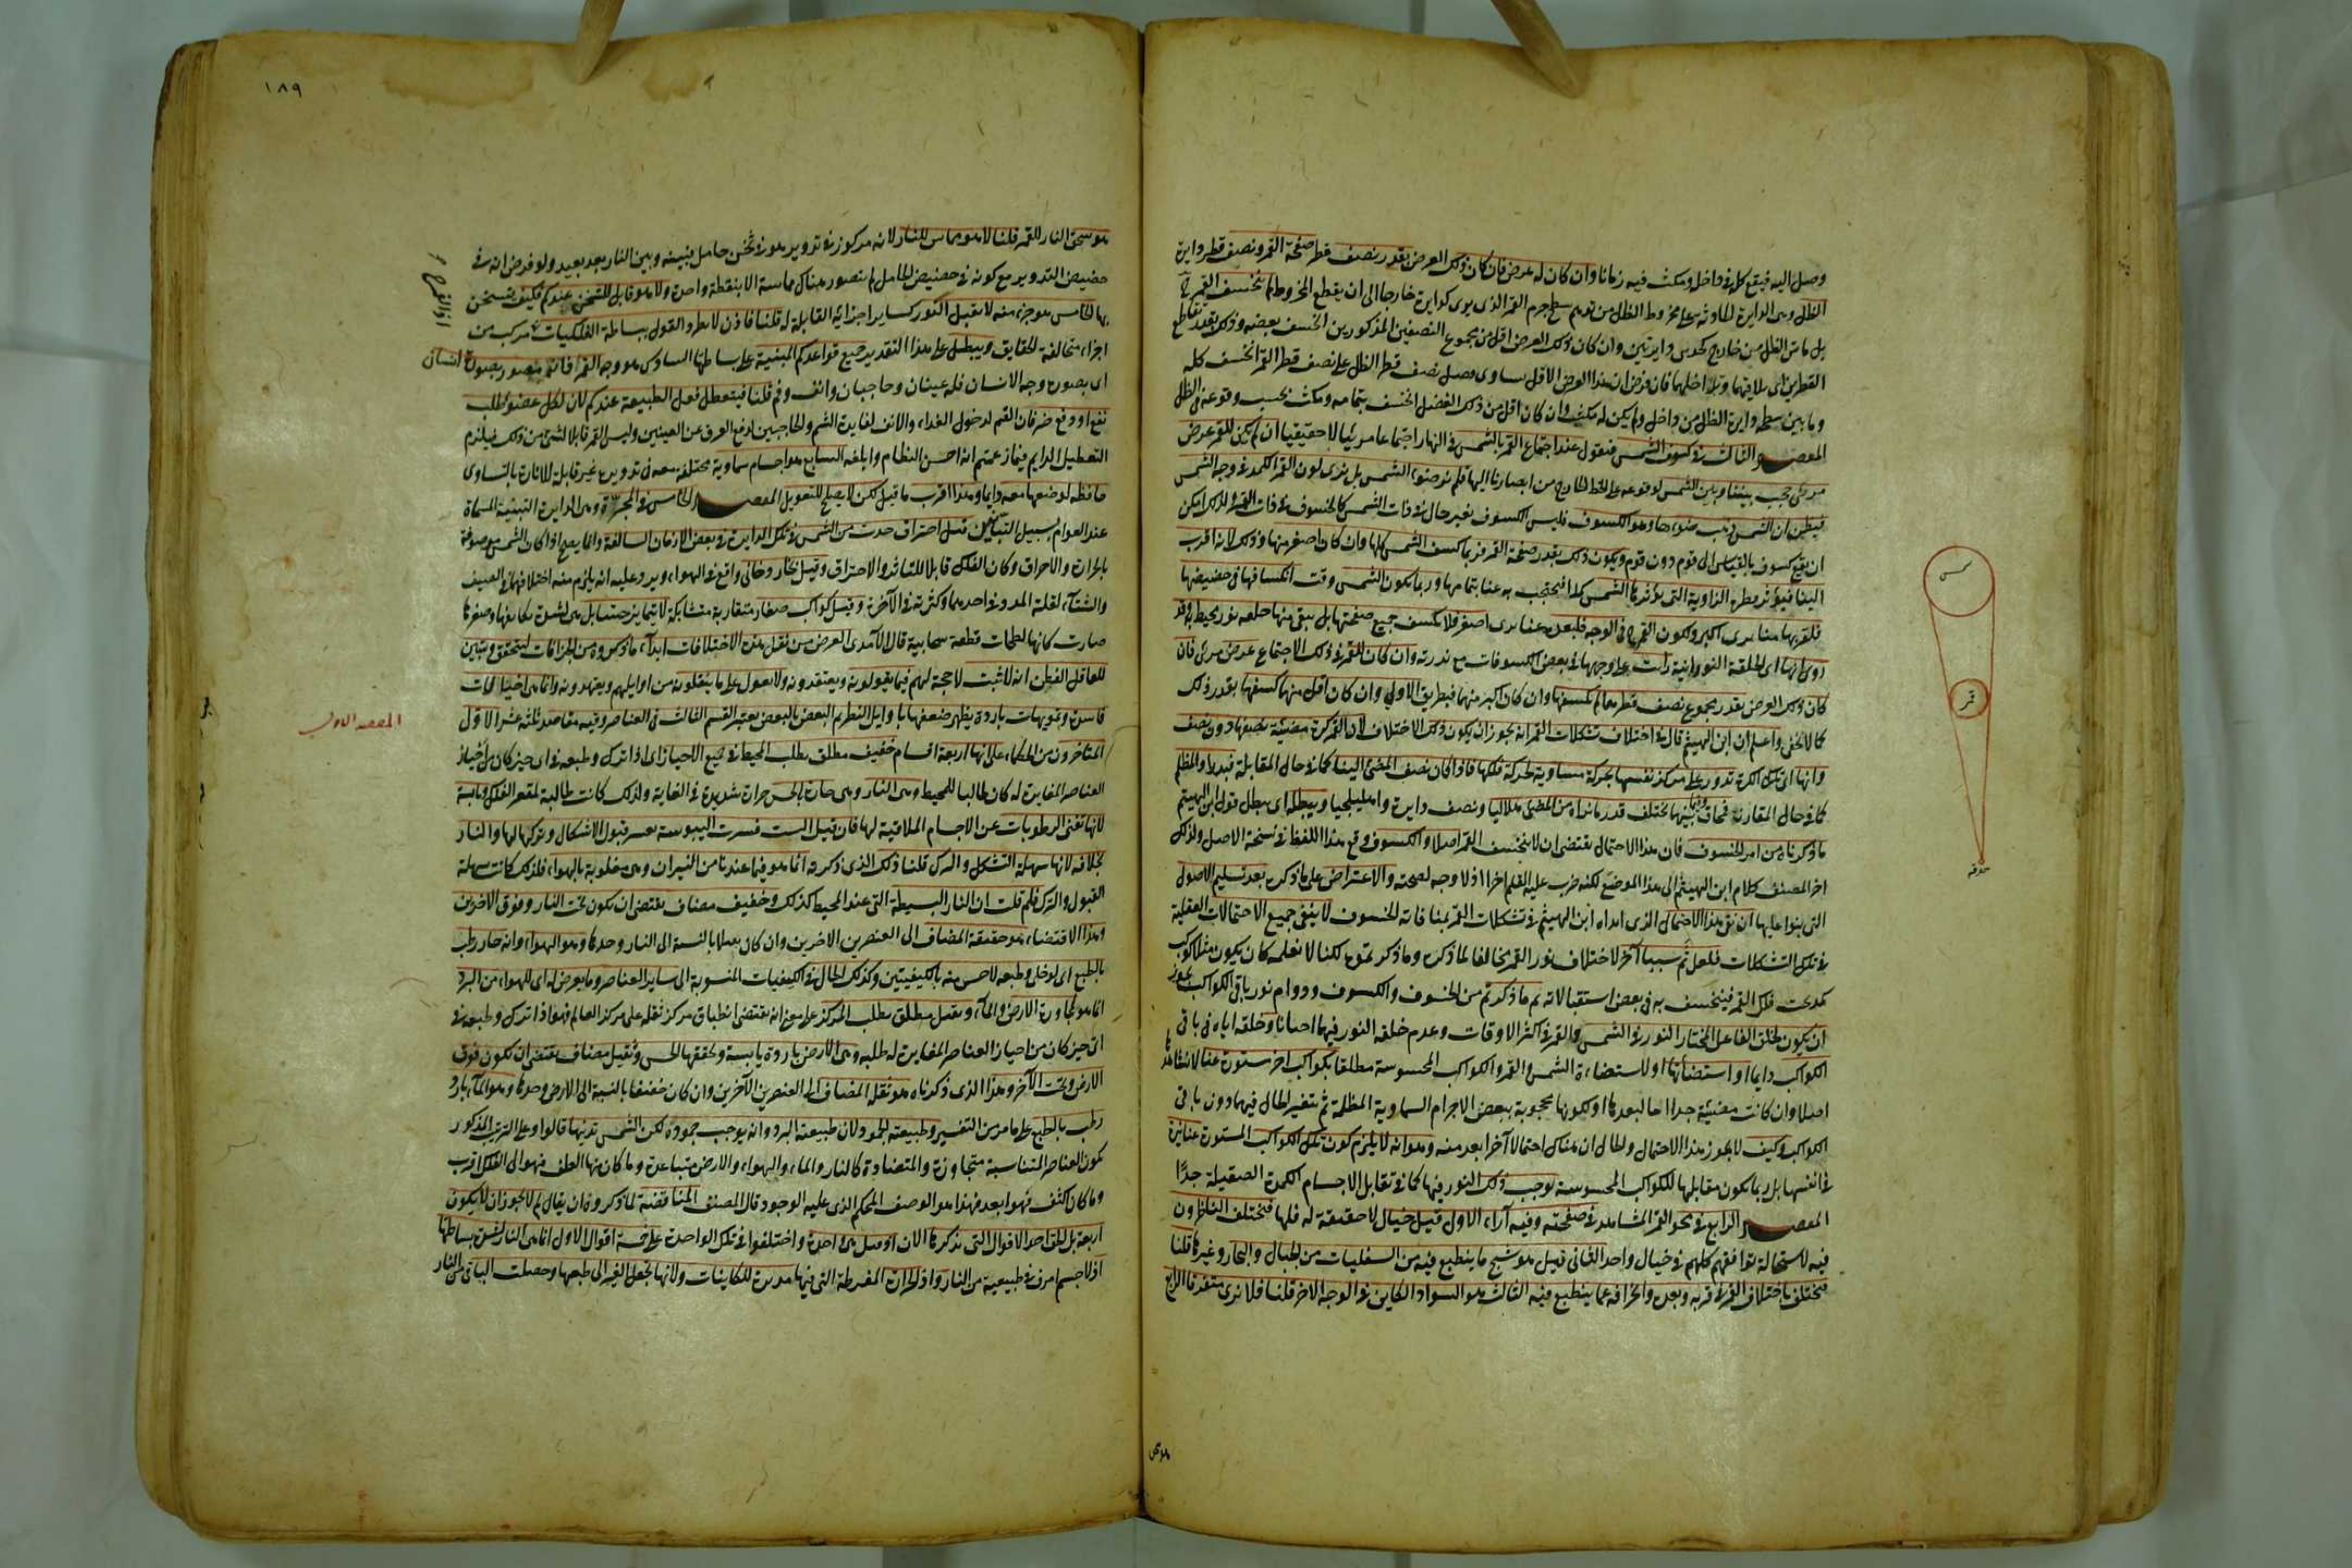 وصل اليه فيقع كله في داخله ومكث فيه زمانا وان كان له عرض فان كان ذلك العرض بقدر نصف قطر صفحة القمر ونصف قطر دايرة
الظل وهى الدايرة الحادثة على مخروط الظل من توهم سطح جرم القمر الذى يرى كدايرة خارجا الى ان يقطع المخروط لم ينخسف القمر
بل ماس الظل من خارج كحدى دايرتين وان كان ذلك العرض اقل من مجموع النصفين المذكورين انخسف بعضه وذلك بقدر تقاطع
القطرين اى تلاقيهما وتداخلهما فان فرض ان هذا العرض الاقل ساوى فضل نصف قطر الظل على نصف قطر القمر انخسف كله
وماس سطحه دايرة الظل من داخل ولم يكن له مكث وان كان اقل من ذلك الفضل انخسف بتمامه ومكث بحسب وقوعه فى الظل
المقصد الثالث فى كسوف الشمس فنقول عند اجتماع القمر بالشمس فى النهار اجتماعا مرئيا لا حقيقيا ان لم يكن للقمر عرض
مرئى حجب بيننا وبين الشمس لوقوعه على الخط الخارج من ابصارنا اليها فلم نر ضوء الشمس بل نرى لون القمر الكمد فى وجه الشمس
فيظن ان الشمس ذهب ضوءها وهو الكسوف فليس الكسوف تغير حال فى ذات الشمس كالخسوف فى ذات القمر ولذلك امكن
ان يقع كسوف بالقياس الى قوم دون قوم ويكون ذلك بقدر صفحة القمر فربما كسف الشمس كلها وان كان اصغر منها وذلك لانه اقرب
الينا فيوتر قطره الزاوية التى يوترها الشمس كلها فيحتجب به عنا بتمامها وربما يكون الشمس وقت انكسافها فى حضيضها
فلقربها منا يرى اكبر ويكون القمر فى اوجه فلبعده عنا يرى اصغر فلا يكسف جميع صفحتها بل يبقى منها حلقة نور محيط به وقد
روى انها اى الحلقة النورانية رأت على وجهها فى بعض الكسوفات مع ندرته وان كان للقمر فى ذلك الاجتماع عرض مرئى فان
كان ذلك العرض بقدر مجموع نصف قطرهما لم يكسفها وان كان اكبر منهما فبطريق الاولى وان كان اقل منهما كسفها بقدر ذلك
كما لا يخفى واعلم ان ابن الهيثم قال فى اختلاف تشكلات القمر انه يجوز ان يكون ذلك الاختلاف لان القمر كرة مضيئة نصفها دون نصف
وانها اى تلك الكرة تدور على مركز نفسها بحركة مساوية لحركة فلكها فاذا كان نصفه المضئ الينا كما فى حال المقابلة فبدر او المظلم
كما فى حال المقارنة فمحاق وفيما بينهما يختلف قدر ما نراه من المضئ هلاليا ونصف دايرة واهليلجيا ويبطله اى يبطل قول ابن الهيثم
ما ذكرناه من امر الخسوف فان هذا الاحتمال يقتضى ان لا ينخسف القمر اصلا والكسوف وقع هذا اللفظ فى نسخة الاصل ولذلك
اخر المصنف كلام ابن الهيثم الى هذا الموضع لكنه ضرب عليه القلم اخرا اذ لا وجه لصحته والاعتراض على ما ذكره بعد تسليم الاصول
التى بنوا عليها ان نفى هذا الاحتمال الذى ابداه ابن الهيثم فى تشكلات القمر بمنافاته للخسوف لا ينفى جميع الاحتمالات العقلية
فى تلك التشكلات فلعل ثم سببا آخر لاختلاف نور القمر مخالفا لما ذكره وما ذكرتموه لكنا لا نعلمه كأن يكون مثلا كوكب
كمد تحت فلك القمر فينخسف به فى بعض استقبالاته ثم ما ذكرتم من الخسوف والكسوف ودوام نور باقى الكواكب يجوز
ان يكون لخلق الفاعل المختار النور فى الشمس والقمر فى اكثر الاوقات وعدم خلقه النور فيهما احيانا وخلقه اياه فى باقى
الكواكب دايما او استضاءتها او لاستضاءة الشمس والقمر والكواكب المحسوسة مطلقا بكواكب اخر مستورة عنا لا نشاهدها
اصلا وان كانت مضيئة جدا اما لبعدها او لكونها محجوبة ببعض الاجرام السماوية المظلمة ثم يتغير الحال فيهما دون باقى
الكواكب وكيف لا يجوز هذا الاحتمال والحال ان هناك احتمالا آخر ابعد منه وهو انه لا يلزم كون تلك الكواكب المستورة عنا نيرة
فى انفسها بل ربما يكون مقابلها للكواكب المحسوسة يوجب ذلك النور فيها كما فى تقابل الاجسام الكمدة الصقيلة جدا
المقصد الرابع فى محو القمر المشاهد فى صفحته وفيه آراء الاول قيل خيال لا حقيقة له قلنا فيختلف الناظرون
فيه لاستحالة توافقهم كلهم فى خيال واحد الثانى قيل هو شبح ما ينطبع فيه من السفليات من الجبال والبحار وغيرها قلنا
فيختلف باختلاف القمر فى قربه وبعده وانحرافه عما ينطبع فيه الثالث هو السواد الكاين فى الوجه الاخر قلنا فلا نرى متفرقا الرابع
هو سحق
شمس
قمر
حدقه
١٨٩
هو سحق النار للقمر قلنا لا هو مماس للنار لانه مركوز فى تدوير هو فى ثخن حامل فبينه وبين النار بعد بعيد ولو فرض انه فى
حضيض التدوير مع كونه فى حضيض الحامل لم يتصور هناك مماسة الا بنقطة واحدة ولا هو قابل للتسخن عندكم فكيف يتسخن
بها الخامس هو جزء منه لا يقبل النور كساير اجزائه القابلة له قلنا فاذن لا يطرد القول ببساطة الفلكيات مركب من
اجزاء متخالفة الحقايق ويبطل على هذا التقدير جميع قواعدكم المبنية على بساطتها السادس هو وجه القمر فانه مصور بصورة انسان
اى بصورة وجه الانسان فله عينان وحاجبان وانف وفم قلنا فيتعطل فعل الطبيعة عندكم لان لكل عضو طلب
نفع او دفع ضر فان الفم لدخول الغداء والانف لفايدة الشم والحاجبين لدفع العرق عن العينين وليس القمر قابلا لشئ من ذلك فيلزم
التعطيل الدايم فيما زعمتم انه احسن النظام وابلغه السابع هو اجسام سماوية مختلفة معه فى تدويره غير قابلة للانارة بالتساوى
حافظة لوضعها معه دايما وهذا اقرب ما قيل لكن لا يصلح للتعويل المقصد الخامس فى المجرّة وهى الدايرة التبنية المسماة
عند العوام بسبيل التبانين قيل احتراق حدث من الشمس فى تلك الدايرة فى بعض الازمان السالفة وانما يصح اذا كان الشمس موصوفة
بالحرارة والاحراق وكان الفلك قابلا للتاثر والاحتراق وقيل بخار دخانى واقع فى الهواء ويرد عليه انه يلزم منه اختلافها فى الصيف
والشتاء لقلة المدد فى احدهما وكثرته فى الآخر وقيل كواكب صغار متقاربة متشابكة لا يتمايز حسا بل هى لشدة تكاثفها وصغرها
صارت كانها لطخات قطعة سحابية قال الآمدى الغرض من نقل هذه الاختلافات ابداء ما ذكروه من الخرافات ليتحقق ويتبين
للعاقل الفطن انه لا ثبت لا حجة لهم فيما يقولونه ويعتقدونه ولا معول على ما ينقلونه من اوايلهم ويعتمدونه وانما هى خيالات
فاسدة وتمويهات باردة يظهر ضعفها باوايل النظر ثم البعض بالبعض يعتبر القسم الثالث فى العناصر وفيه مقاصد ثلثة عشر الاول
المتاخرون من الحكماء على انها اربعة اقسام خفيف مطلق يطلب المحيط فى جميع الاحياز اى اذا ترك وطبعه فى اى حيز كان من احياز
العناصر المغايرة له كان طالبا للمحيط وهى النار وهى حارة بالحس حرارة شديدة فى الغاية ولذلك كانت طالبة لمقعر الفلك ويابسة
لانها تفنى الرطوبات عن الاجسام الملاقية لها فان قيل الست فسرت اليبوسة بعسر قبول الاشكال وتركها لها والنار
بخلافه لانها سهلة التشكل والترك قلنا ذلك الذى ذكرته انما هو فيما عندنا من النيران وهى مخلوبة بالهواء فلذلك كانت سهلة
القبول والترك فلم قلت ان النار البسيطة التى عند المحيط كذلك وخفيف مضاف يقتضى ان يكون تحت النار وفوق الآخرين
وهذا الاقتضاء هو حقيقة المضاف الى العنصرين الاخرين وان كان ثقيلا بالنسبة الى النار وحدها وهو الهواء وانه حار رطب
بالطبع اى لو خلى وطبعه لاحس منه بالكيفيتين وكذلك الحال فى الكيفيات المنسوبة الى ساير العناصر وما يعرض له اى للهواء من البرد
انما هو لمجاورة الارض والماء وثقيل مطلق يطلب المركز على معنى انه يقتضى انطباق مركز ثقله على مركز العالم فهو اذا ترك وطبعه فى
اى حيز كان من احياز العناصر المغايرة له طلبه وهى الارض باردة يابسة وتحققها الحس وثقيل مضاف يقتضى ان يكون فوق
الارض وتحت الآخر وهذا الذى ذكرناه هو ثقله المضاف الى العنصرين الآخرين وان كان خفيفا بالنسبة الى الارض وحدها وهو الماء بارد
رطب بالطبع على ما مر من التفسير وطبيعته الجمود لان طبيعته البرد وانه يوجب جموده لكن الشمس تذيبها قالوا وعلى الترتيب المذكور
كون العناصر المتناسبة متجاوزة والمتضادة كالنار والماء والهواء والارض متباعدة وما كان منها الطف فهو الى الفلك اقرب
وما كان اكثف فهو ابعد فهذا هو الوصف المحكم الذى عليه الوجود قال المصنف المناقضة لما ذكروه ان يقال لم لا يجوز ان لا يكون
اربعة بل الحق احد الاقوال التى نذكرها الآن اذ قيل هى واحدة واختلفوا فى تلك الواحدة على خمسة اقوال الاول انما هى النار لشدة بساطتها
اذ لا جسم اصرف فى طبيعته من النار واذ الحرارة المفرطة التى فيها مدبرة للكاينات ولانها تحيل الغير الى طبعها وحصلت البواقى من النار
المقصد الاول